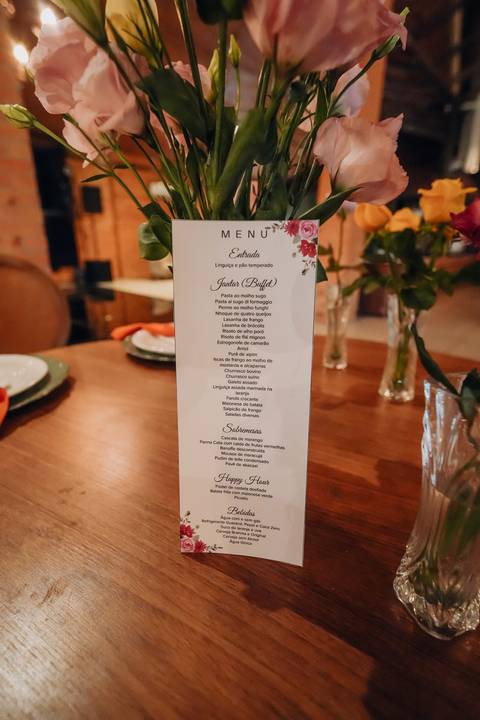 MENU
Entrada
Linguiça e pão temperado
Jantar (Buffet)
Pasta ao molho sugo
Pasta al sugo di formaggio
Penne ao molho funghi
Nhoque de quatro queijos
Lasanha de frango
Lasanha de brócolis
Risoto de alho poró
Risoto de filé mignon
Estrogonofe de camarão
Arroz
Purê de aipim
Iscas de frango ao molho de
mostarda e alcaparras
Churrasco bovino
Churrasco suíno
Galeto assado
Linguiça assada marinada na
laranja
Farofa crocante
Maionese de batata
Salpicão de frango
Saladas diversas
Sobremesas
Cascata de morango
Panna Cota com calda de frutas vermelhas
Banoffe desconstruída
Mousse de maracujá
Pudim de leite condensado
Pavê de abacaxi
Happy Hour
Pastel de costela desfiada
Batata frita com maionese verde
Picolés
Bebidas
Água com e sem gás
Refrigerante Guaraná, Pepsi e Coca Zero
Suco de laranja e uva
Cerveja Brahma e Original
Cerveja sem álcool
Água tônica